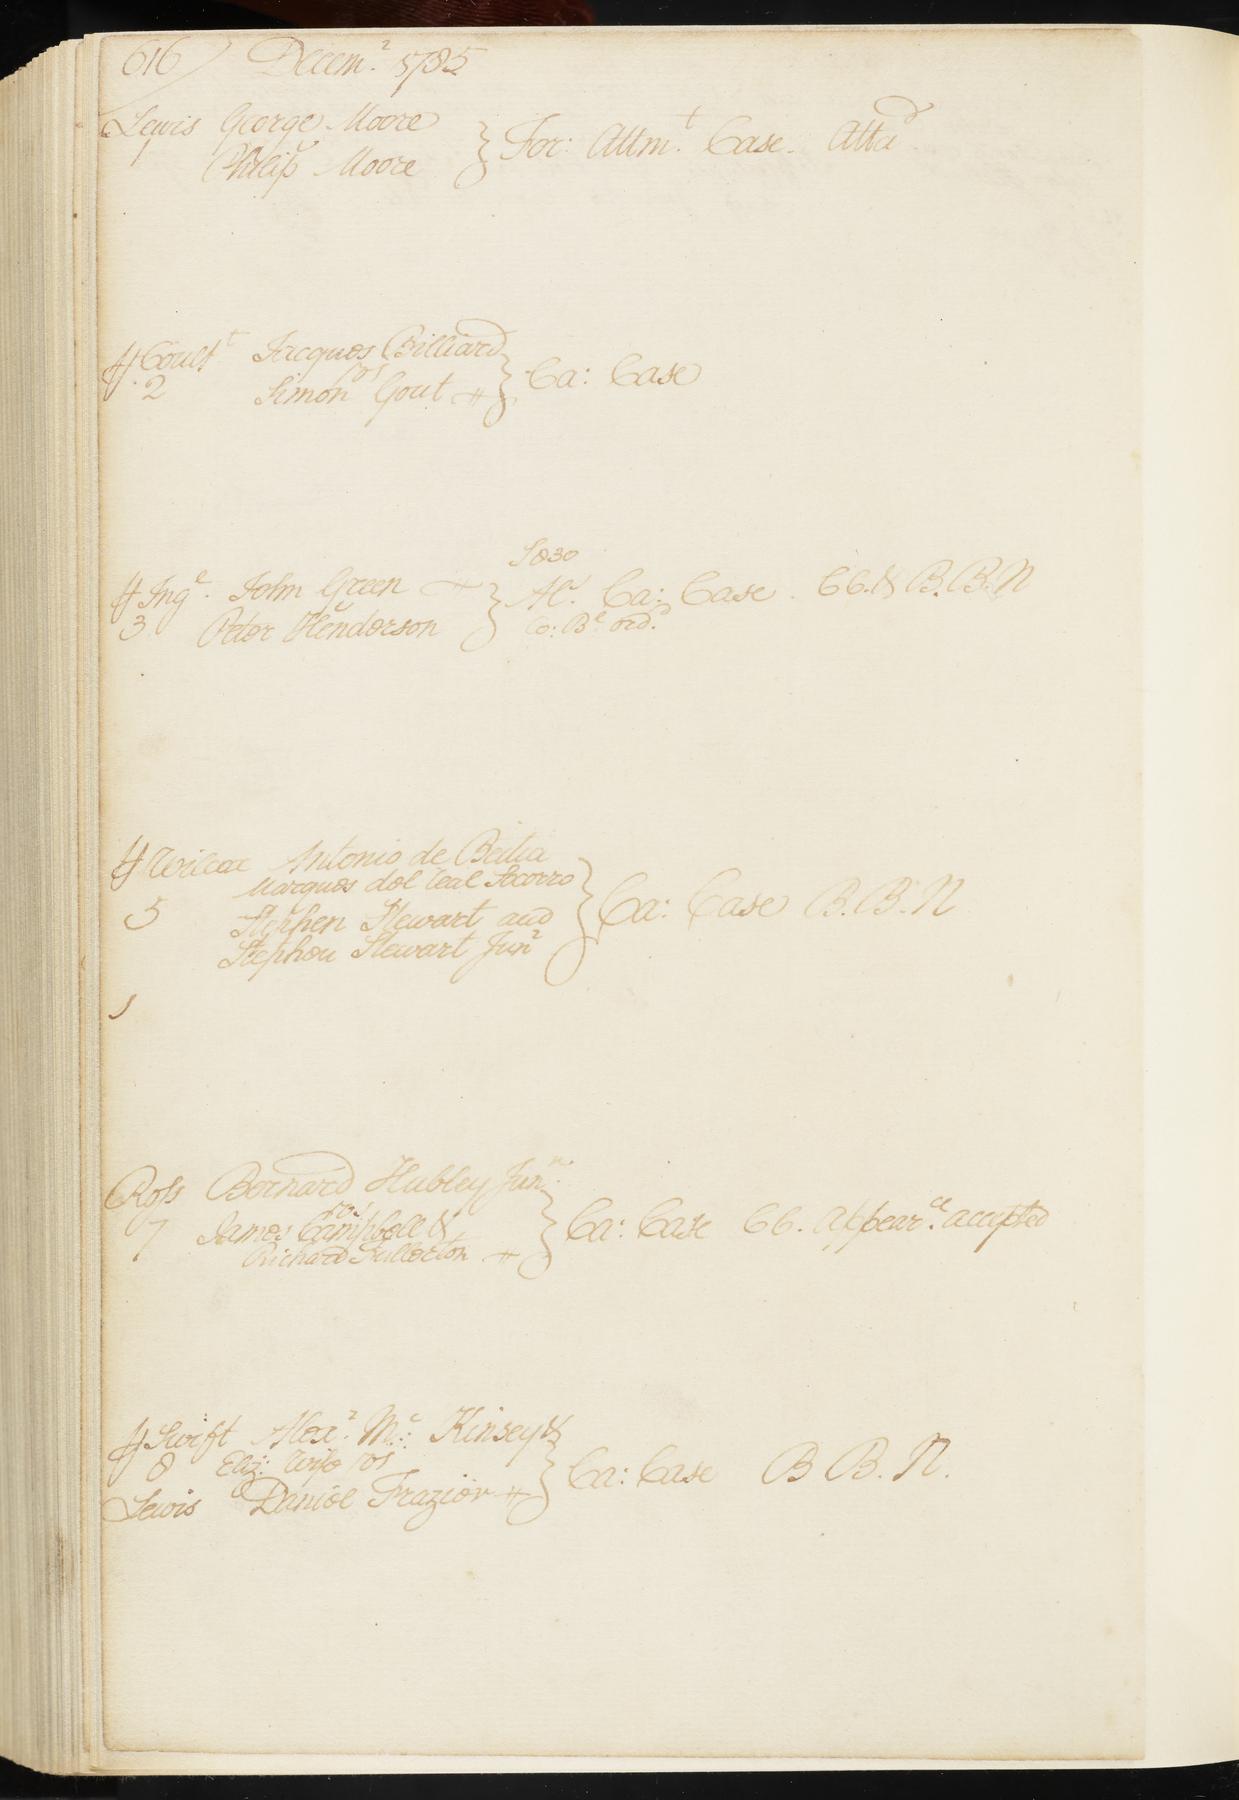 616 Decemr. 1785
Lewis George Moore
1 Philip Moore
For: Attmt. Case. Attad
Coultt Jacques Billiard
2 vs Simon Gout
Ca: Case
S830
Inge. John Green
3 vs Peter Henderson
Al. Ca: Case. CC. & B.B.N
Co: Be. ord.
Wilcox Antonio de Beitia
Marques del real Socorro
5 vs Stephen Stewart and
Stephen Stewart Junr
Ca: Case B.B.N
Ross Bernard Hubley Junr.
vs
7 James Campbell &
Richard Fullerton
Ca: Case CC. appearce. accepted
Swift Alexr. Mc: Kinsey &
8 Eliz: Wife vs
Lewis Daniel Frazier
Ca: Case B B. N.